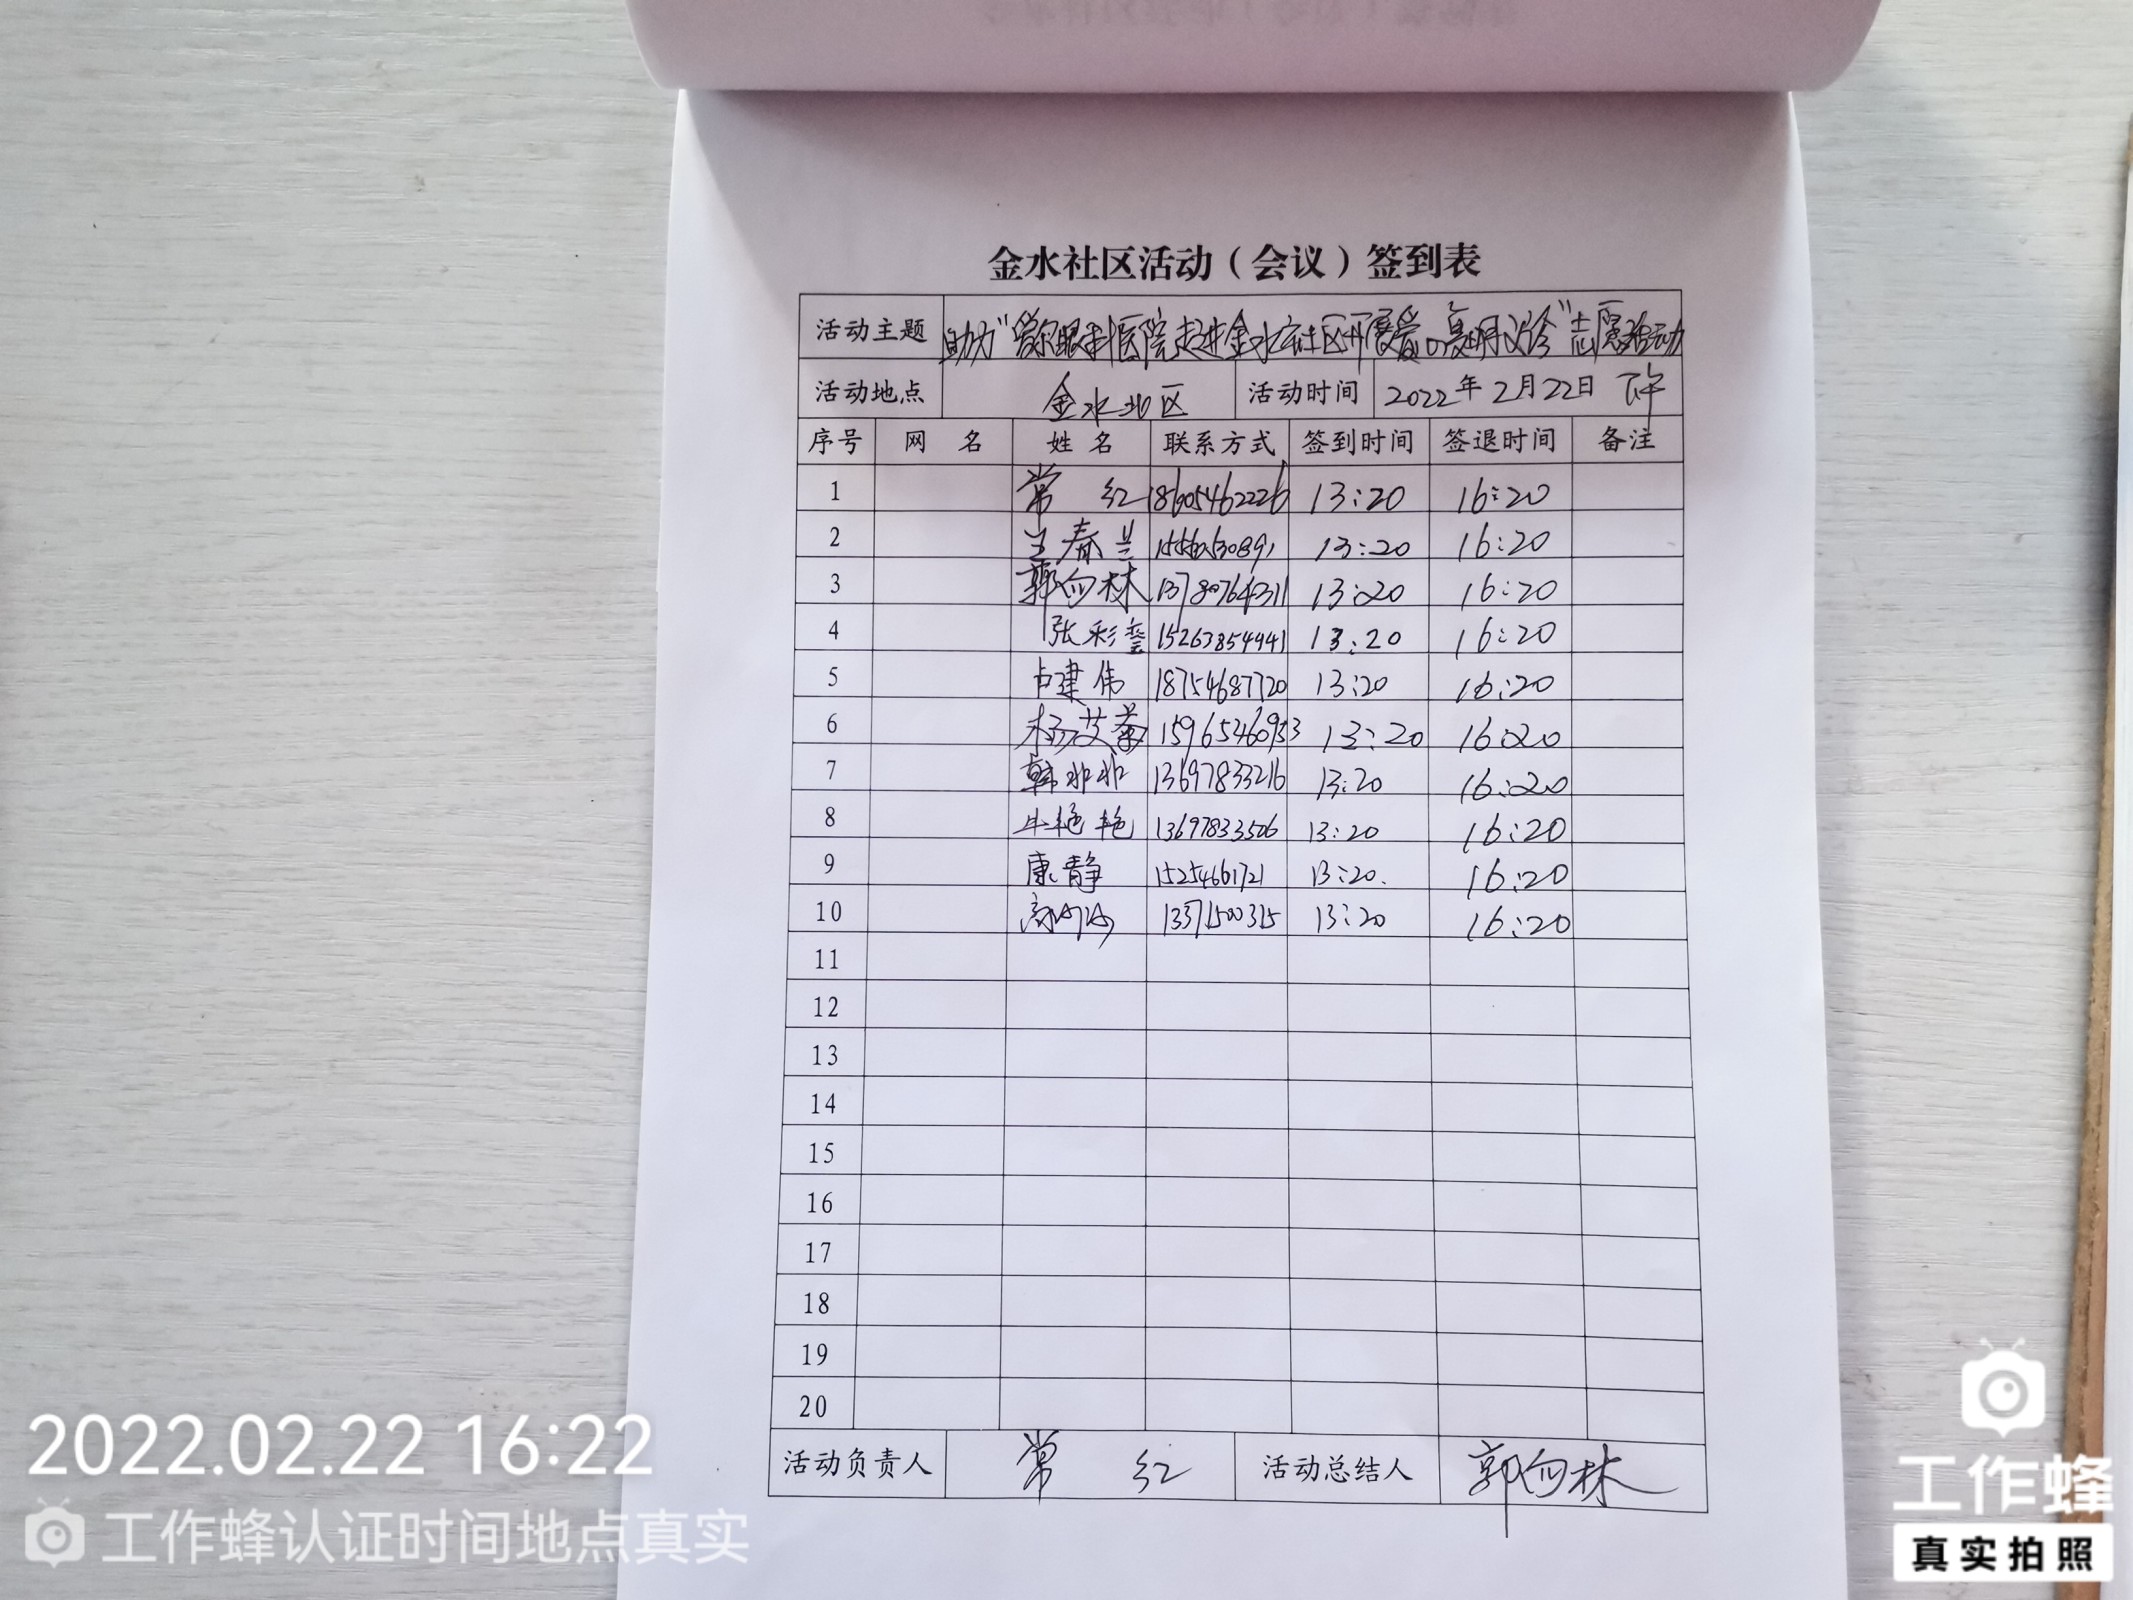 金水社区活动（会议）签到表
活动主题 助力“爱尔眼科医院走进金水社区开展爱心复明义诊”志愿活动
活动地点 金水北区 活动时间 2022年2月22日 下午
序号 网 名 姓 名 联系方式 签到时间 签退时间 备注
1 常 红 18605462226 13:20 16:20
2 兰春兰 13:20 16:20
3 郭向林 13780764311 13:20 16:20
4 张彩 15263854941 13:20 16:20
5 占建伟 18754687720 13:20 16:20
6 杨艾菊 13:20 16:20
7 韩非非 13697833216 13:20 16:20
8 牛艳艳 13697833506 13:20 16:20
9 康静 15254661721 13:20. 16:20
10 高 13371500315 13:20 16:20
11
12
13
14
15
16
17
18
19
20
活动负责人 常 红 活动总结人 郭向林
2022.02.22 16:22
工作蜂认证时间地点真实
工作蜂
真实拍照